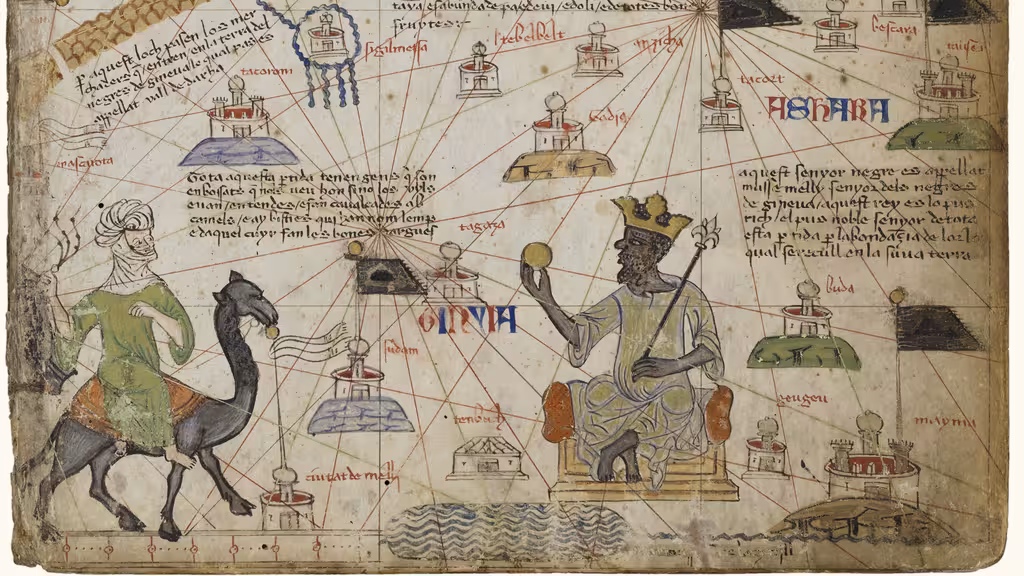 fruytes:-
P aquest loch pasen los mer
chaders q entren en la terra del
negres de gineua lo qual pas es
appellat vall de darha
sigilmessa
tebelbelt
anzicha
bescara
tacorom
tacort
ASHARA
Tota aquesta ptida tenen gens q son
enbosats q nols veu hom sino los uyls
e uan/en tendes/e fan caualcades ab
camels/e ay bisties qui han nom lemp
e daquel cuyr fan les bones dargues
aquest senyor negre es appellat
musse melly senyor dels negres
de gineua/aquest rey es lo pus
rich/el pus noble senyor de tota
esta ptida p labondaçia de lor l
qual se recull en la suua terra
tagaza
GINYIA
buda
sudam
tenbuch
geugeu
mayma
ciutat de melli